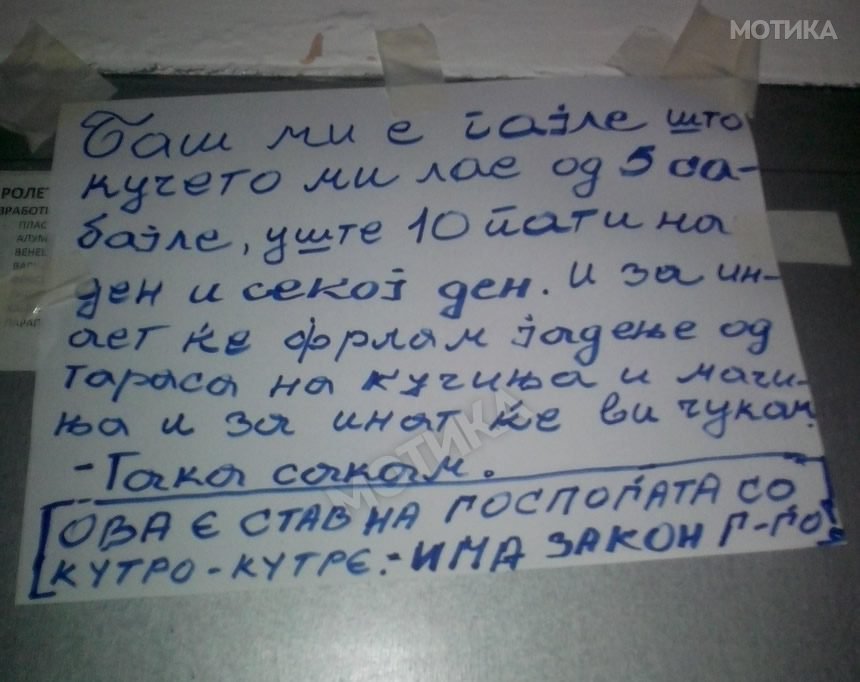 МОТИКА
Баш ми е гајле што
кучето ми лае од 5 са-
бајле, уште 10 пати на
ден и секој ден. И за ин-
ает ќе фрлам јадење од
тараса на кучиња и мачи-
ња и за инат ќе ви чукам
- Така сакам.
ОВА Е СТАВ НА ГОСПОЃАТА СО
КУТРО-КУТРЕ.-ИМА ЗАКОН Г-ЃО
РОЛЕТ
ЗРАБОТ
ПЛАС
АЛУМ
ВЕНЕЦ
ПАРАП
МОТИКА